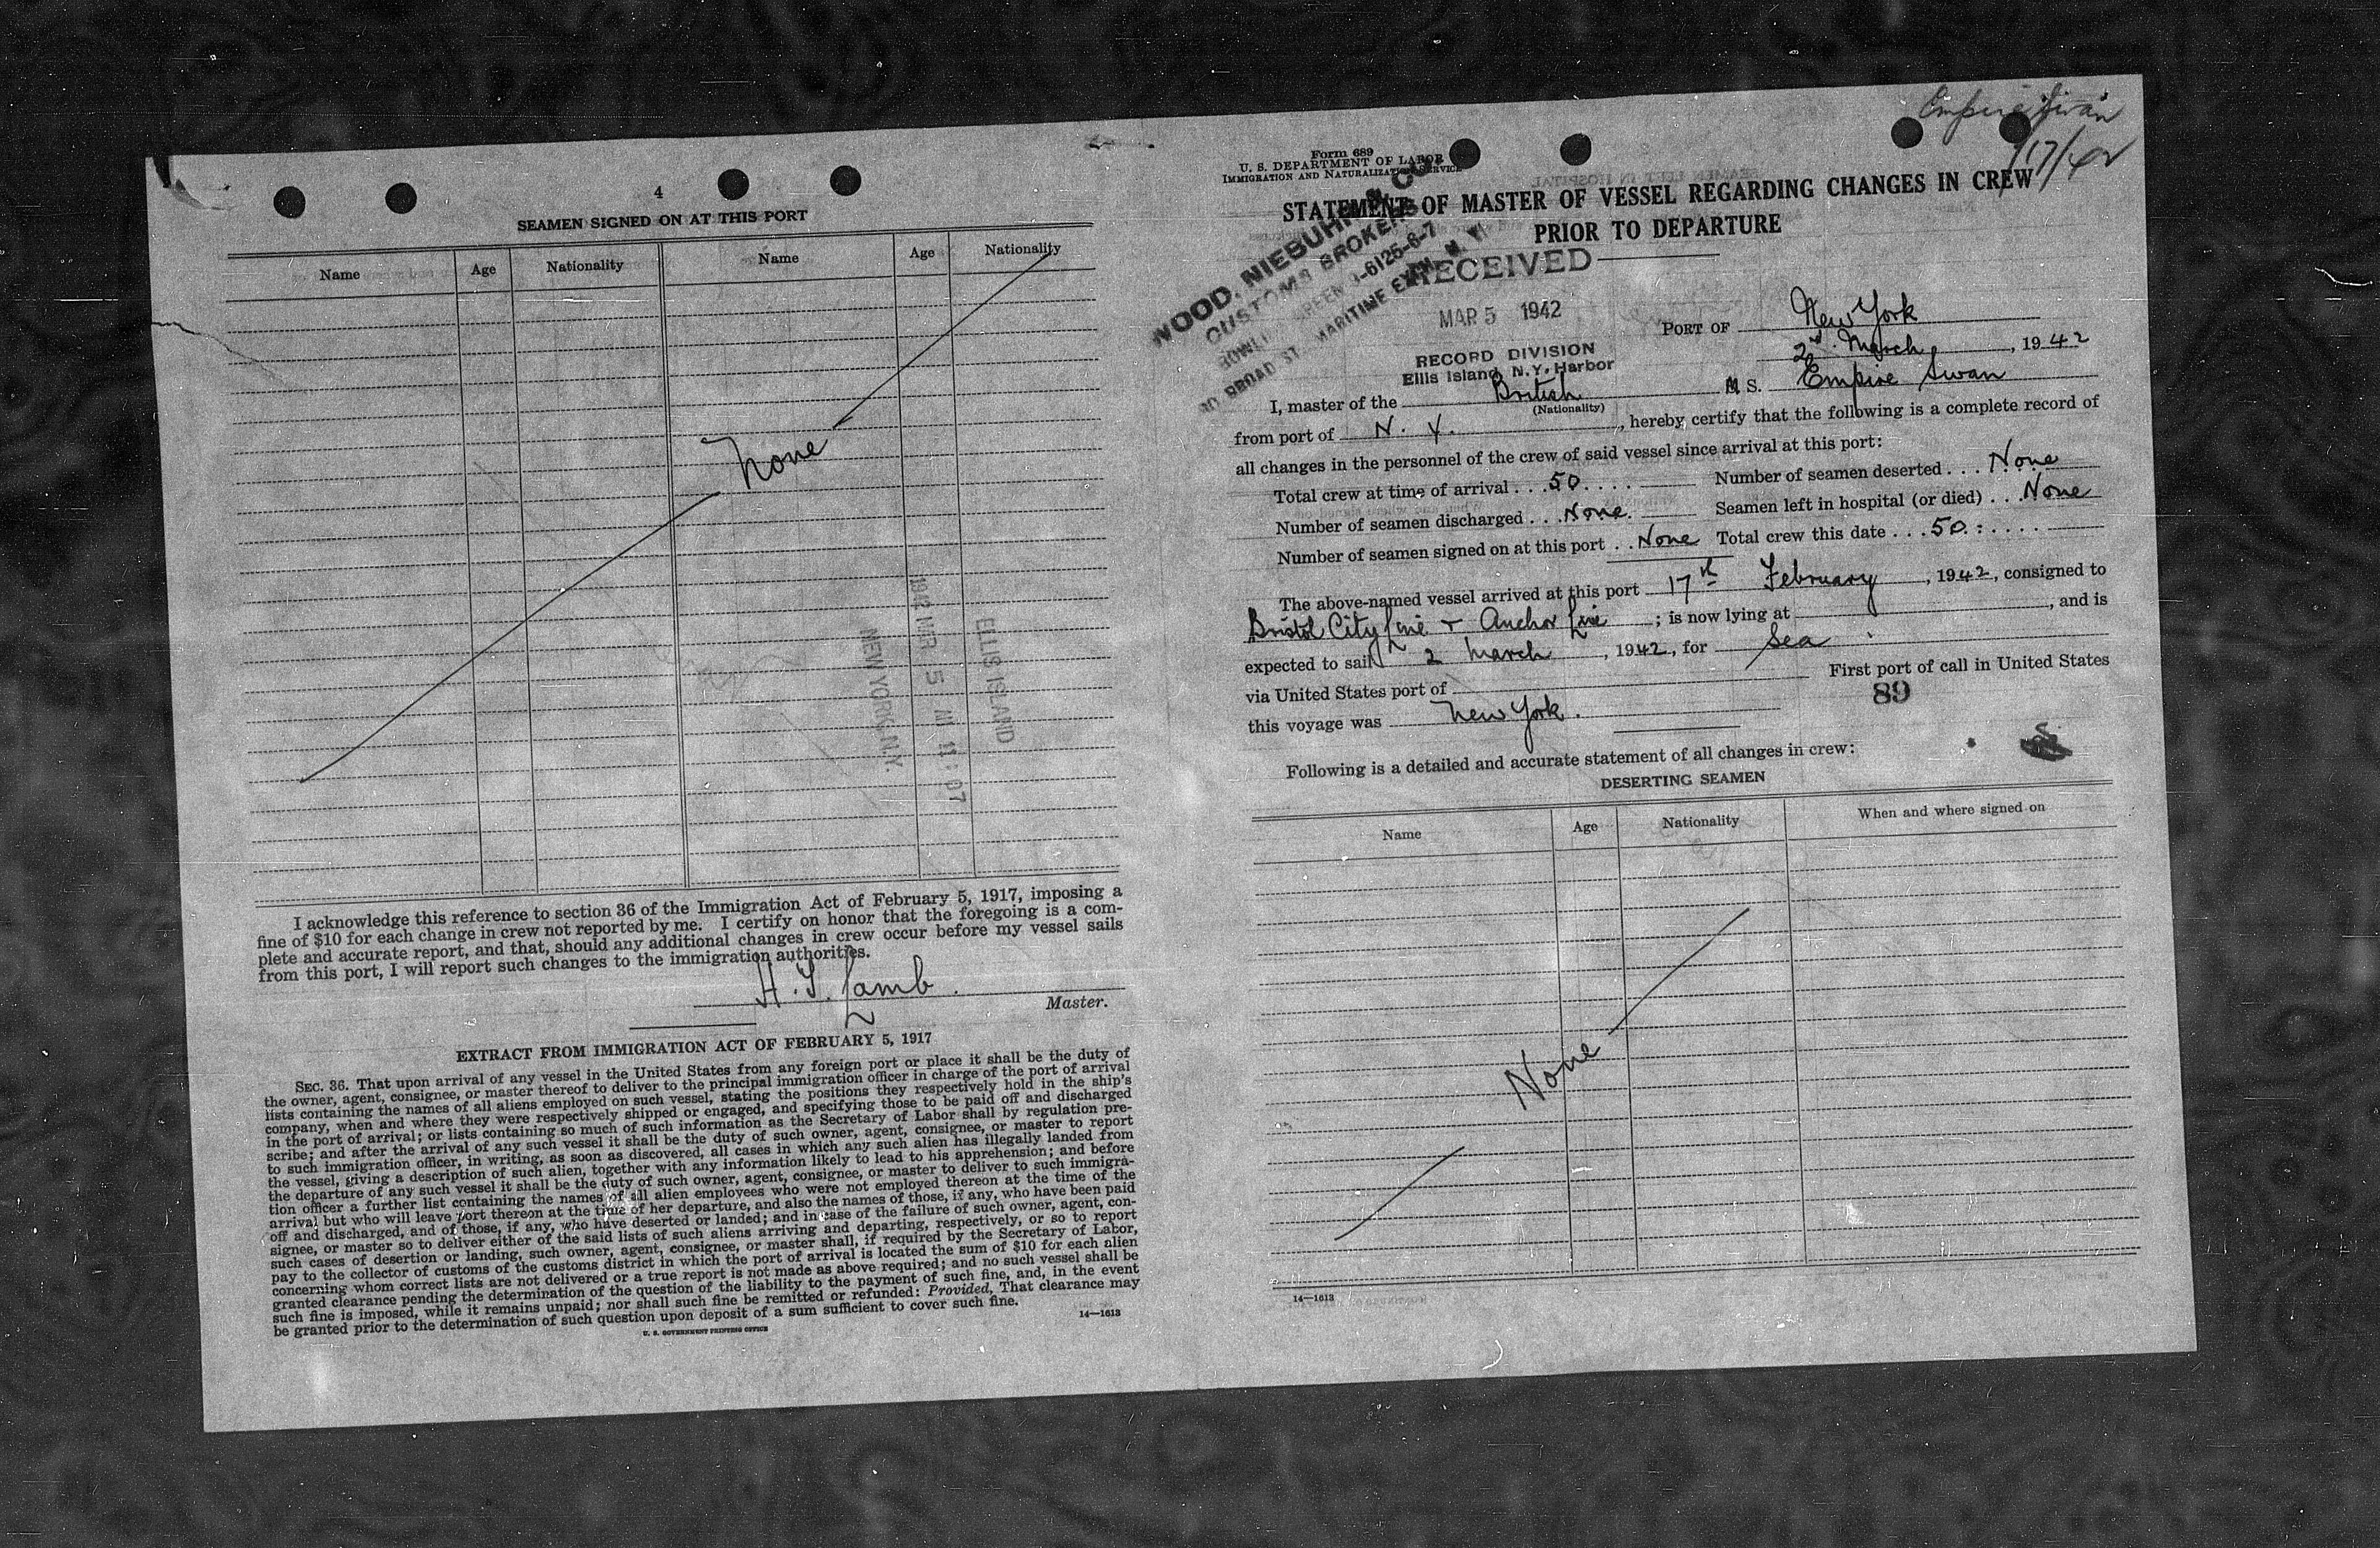 4
SEAMEN SIGNED ON AT THIS PORT
Name Age Nationality Name Age Nationality
None
ELLIS ISLAND
1942 MAR 5 AM 11:07
NEW YORK, N.Y.
I acknowledge this reference to section 36 of the Immigration Act of February 5, 1917, imposing a
fine of $10 for each change in crew not reported by me. I certify on honor that the foregoing is a com-
plete and accurate report, and that, should any additional changes in crew occur before my vessel sails
from this port, I will report such changes to the immigration authorities.
H. S. Lamb.
Master.
EXTRACT FROM IMMIGRATION ACT OF FEBRUARY 5, 1917
SEC. 36. That upon arrival of any vessel in the United States from any foreign port or place it shall be the duty of
the owner, agent, consignee, or master thereof to deliver to the principal immigration officer in charge of the port of arrival
lists containing the names of all aliens employed on such vessel, stating the positions they respectively hold in the ship's
company, when and where they were respectively shipped or engaged, and specifying those to be paid off and discharged
in the port of arrival; or lists containing so much of such information as the Secretary of Labor shall by regulation pre-
scribe; and after the arrival of any such vessel it shall be the duty of such owner, agent, consignee, or master to report
to such immigration officer, in writing, as soon as discovered, all cases in which any such alien has illegally landed from
the vessel, giving a description of such alien, together with any information likely to lead to his apprehension; and before
the departure of any such vessel it shall be the duty of such owner, agent, consignee, or master to deliver to such immigra-
tion officer a further list containing the names of all alien employees who were not employed thereon at the time of the
arrival but who will leave port thereon at the time of her departure, and also the names of those, if any, who have been paid
off and discharged, and of those, if any, who have deserted or landed; and in case of the failure of such owner, agent, con-
signee, or master so to deliver either of the said lists of such aliens arriving and departing, respectively, or so to report
such cases of desertion or landing, such owner, agent, consignee, or master shall, if required by the Secretary of Labor,
pay to the collector of customs of the customs district in which the port of arrival is located the sum of $10 for each alien
concerning whom correct lists are not delivered or a true report is not made as above required; and no such vessel shall be
granted clearance pending the determination of the question of the liability to the payment of such fine, and, in the event
such fine is imposed, while it remains unpaid; nor shall such fine be remitted or refunded: Provided, That clearance may
be granted prior to the determination of such question upon deposit of a sum sufficient to cover such fine.
14—1613
U. S. GOVERNMENT PRINTING OFFICE
Empire Swan
/17/42
Form 689
U. S. DEPARTMENT OF LABOR
IMMIGRATION AND NATURALIZATION SERVICE
STATEMENT OF MASTER OF VESSEL REGARDING CHANGES IN CREW
PRIOR TO DEPARTURE
WOOD, NIEBUHR & CO.
CUSTOMS BROKERS
BOWLING GREEN 9-6125-6-7
BROAD ST. MARITIME EXCH. N. Y.
RECEIVED
MAR 5 1942
RECORD DIVISION
Ellis Island, N.Y. Harbor
PORT OF New York
2nd. March, 1942
I, master of the British M S. Empire Swan
(Nationality)
from port of N. Y., hereby certify that the following is a complete record of
all changes in the personnel of the crew of said vessel since arrival at this port:
Total crew at time of arrival . . . 50 . . . . Number of seamen deserted . . . None
Number of seamen discharged . . . None. Seamen left in hospital (or died) . . . None
Number of seamen signed on at this port . . None Total crew this date . . . 50. : . . . .
The above-named vessel arrived at this port 17th February, 1942, consigned to
Bristol City Line + Anchor Line; is now lying at , and is
expected to sail 2 March, 1942, for Sea
via United States port of First port of call in United States
89
this voyage was New York.
Following is a detailed and accurate statement of all changes in crew:
DESERTING SEAMEN
Name Age Nationality When and where signed on
None
14—1613